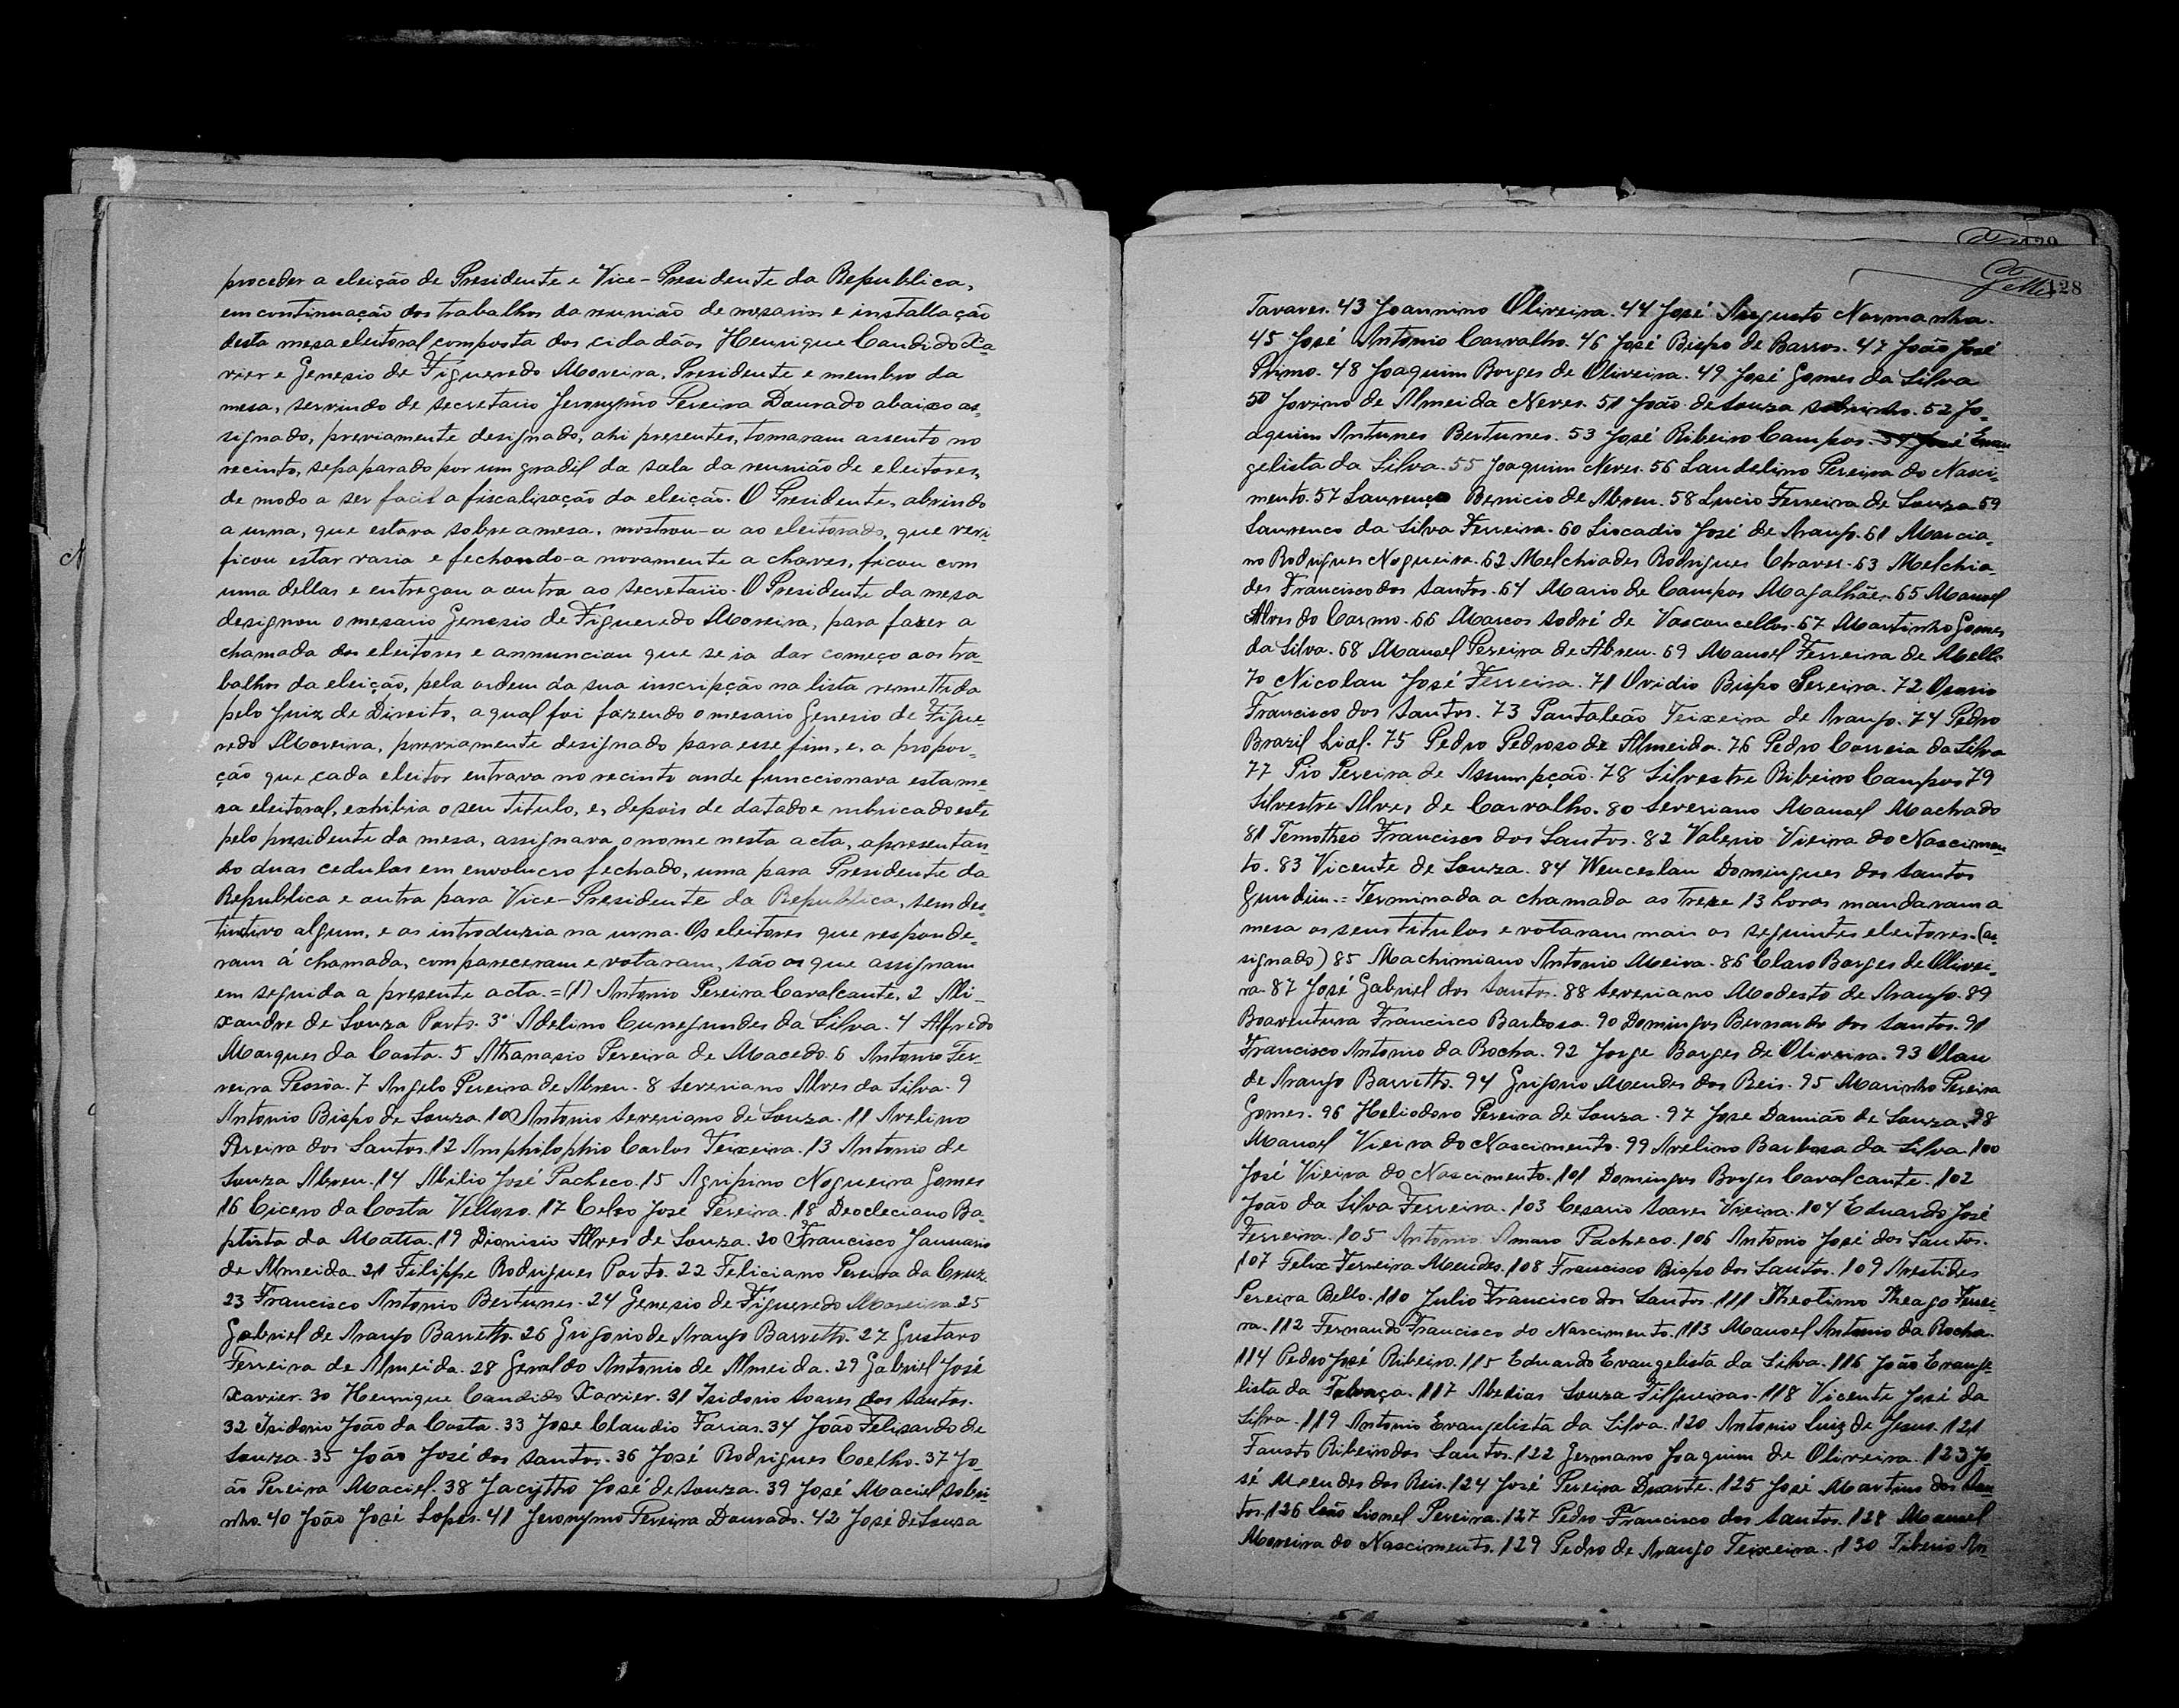 proceder a eleição de Presidente e Vice-Presidente da Republica,
em continuação dos trabalhos da reunião de mesarios e installação
desta mesa eleitoral composta dos cidadãos Henrique Candido Xa-
vier e Genesio de Figueredo Moreira, Presidente e membro da
mesa, servindo de secretario Jeronymo Pereira Dourado abaixo as-
signado, previamente designado, ahi presentes, tomaram assento no
recinto, sepaparado por um gradil da sala da reunião de eleitores,
de modo a ser facil a fiscalisação da eleição. O Presidente, abrindo
a urna, que estava sobre a mesa, mostrou-a ao eleitorado, que veri
ficou estar vasia e fechando-a novamente a chaves, ficou com
uma dellas e entregou a outra ao secretario. O Presidente da mesa
designou o mesario Genesio de Figueredo Moreira, para fazer a
chamada dos eleitores e annunciou que se ia dar começo aos tra-
balhos da eleição, pela ordem da sua inscripção na lista remettida
pelo Juiz de Direito, a qual foi fazendo o mesario Genesio de Figue-
redo Moreira, previamente designado para esse fim, e, a propor-
ção que cada eleitor entrava no recinto onde funccionava esta me
sa eleitoral, exhibia o seu titulo, e, depois de datado e rubricado este
pelo presidente da mesa, assignava o nome nesta acta, apresentan-
do duas cedulas em envolucro fechado, uma para Presidente da
Republica e outra para Vice-Presidente da Republica, sem des-
tinctivo algum, e as introduzia na urna. Os eleitores que responde-
ram á chamada, compareceram e votaram, são os que assignam
em seguida a presente acta.=(1) Antonio Pereira Cavalcante. 2 Ali-
xandre de Souza Porto. 3º Adelino Cunegundes da Silva. 4 Alfredo
Marques da Costa. 5 Athanasio Pereira de Macedo. 6 Antonio Fer-
reira Pessôa. 7 Angelo Pereira de Abreu. 8 Severiano Alves da Silva. 9
Antonio Bispo de Souza. 10 Antonio Severiano de Souza. 11 Avelino
Pereira dos Santos. 12 Amphilophio Carlos Teixeira. 13 Antonio de
Souza Abreu. 14 Abilio José Pacheco. 15 Agripino Nogueira Gomes
16 Cicero da Costa Velloso. 17 Celso José Pereira. 18 Deocleciano Ba-
ptista da Matta. 19 Dionisio Alves de Souza. 20 Francisco Januario
de Almeida. 21 Filippe Rodrigues Porto. 22 Feliciano Pereira da Cruz.
23 Francisco Antonio Bertunes. 24 Genesio de Figueredo Moreira. 25
Gabriel de Araujo Barretto. 26 Grigorio de Araujo Barretto. 27 Gustavo
Ferreira de Almeida. 28 Geraldo Antonio de Almeida. 29 Gabriel José
Xavier. 30 Henrique Candido Xavier. 31 Isidorio Soares dos Santos.
32 Isidorio João da Costa. 33 Jose Claudio Farias. 34 João Felisardo de
Souza. 35 João José dos Santos. 36 José Rodrigues Coelho. 37 Jo-
ão Pereira Maciel. 38 Jacyntho José de Souza. 39 José Maciel Sobri-
nho. 40 João José Lopes. 41 Jeronymo Pereira Dourado. 42 José de Souza
128
Tavares. 43 Joannino Oliveira. 44 José Augusto Normanha.
45 José Antonio Carvalho. 46 José Bispo de Barros. 47 João José
Primo. 48 Joaquim Borges de Oliveira. 49 José Gomes da Silva
50 Jovino de Almeida Neves. 51 João de Souza Sobrinho. 52 Jo-
aquim Antunes Bertunes. 53 José Ribeiro Campos. 54 José Evan
gelista da Silva. 55 Joaquim Neves. 56 Landelino Pereira do Nasci-
mento. 57 Laurenço Benicio de Abreu. 58 Lucio Ferreira de Souza 59
Laurenco da Silva Ferreira. 60 Liocadio José de Araujo. 61 Marcia-
no Rodrigues Nogueira. 62 Melchiades Rodrigues Chaves. 63 Melchia-
des Francisco dos Santos. 64 Mario de Campos Magalhães. 65 Manoel
Alves do Carmo. 66 Marcos Sodré de Vasconcellos. 67 Martinho Gomes
da Silva. 68 Manoel Pereira de Abreu. 69 Manoel Ferreira de Mello
70 Nicolau José Ferreira. 71 Ovidio Bispo Pereira. 72 Osorio
Francisco dos Santos. 73 Pantaleão Teixeira de Araujo. 74 Pedro
Brazil Lial. 75 Pedro Pedroso de Almeida. 76 Pedro Correia da Silva
77 Pio Pereira de Assumpção. 78 Silvestre Ribeiro Campos 79
Silvestre Alves de Carvalho. 80 Severiano Manoel Machado
81 Temotheo Francisco dos Santos. 82 Valerio Vieira do Nascimen
to. 83 Vicente de Souza. 84 Wenceslau Domingues dos Santos
Gundim.= Terminada a chamada as treze 13 horas mandaram a
mesa os seus titulos e votaram mais os seguintes eleitores. (as-
signado) 85 Machimiano Antonio Meira. 86 Claro Borges de Olivei-
ra. 87 José Gabriel dos Santos. 88 Severiano Modesto de Araujo. 89
Boaventura Francisco Barbosa. 90 Domingos Bernardo dos Santos. 91
Francisco Antonio da Rocha. 92 Jorge Borges de Oliveira. 93 Olau
de Araujo Barretto. 94 Grigorio Mendes dos Reis. 95 Marinho Pereira
Gomes. 96 Heliodoro Pereira de Souza. 97 Jose Damião de Souza. 98
Manoel Vieira do Nascimento. 99 Avelino Barbosa da Silva 100
José Vieira do Nascimento. 101 Domingos Borges Cavalcante. 102
João da Silva Ferreira. 103 Cesario Soares Vieira. 104 Eduardo José
Ferreira. 105 Antonio Amaro Pacheco. 106 Antonio José dos Santos.
107 Felix Ferreira Mendes. 108 Francisco Bispo dos Santos. 109 Arestides
Pereira Bello. 110 Julio Francisco dos Santos. 111 Theotimo Theago Ferrei-
ra. 112 Fernando Francisco do Nascimento. 113 Manoel Antonio da Rocha.
114 Pedro José Ribeiro. 115 Eduardo Evangelista da Silva. 116 João Evange
lista da 117 Abedias Souza Filgueiras. 118 Vicente José da
Silva. 119 Antonio Evangelista da Silva. 120 Antonio Luiz de Jesus. 121
Fausto Ribeiro dos Santos. 122 Germano Joaquim de Oliveira. 123 Jo-
sé Mendes dos Reis. 124 José Pereira Duarte. 125 José Martins dos San
tos. 126 Leão Lionel Pereira. 127 Pedro Francisco dos Santos. 128 Manoel
Moreira do Nascimento. 129 Pedro de Araujo Teixeira. 130 Tiberio An-